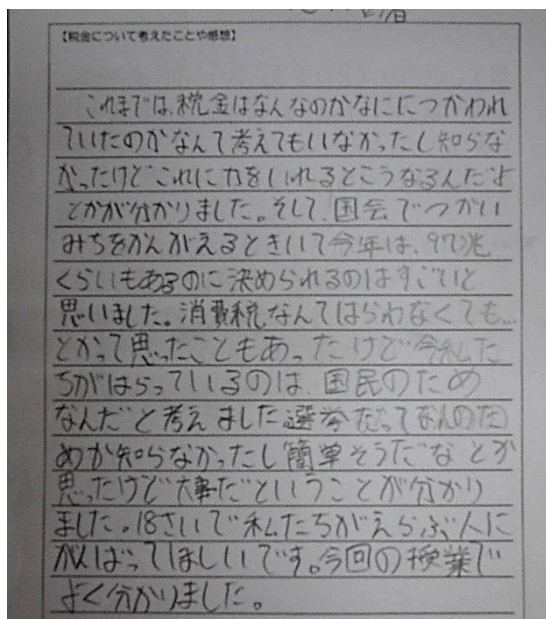 【税金について考えたことや感想】
これまでは、税金はなんなのかなににつかわれ
ていたのかなんて考えてもいなかったし知らな
かったけどこれに力をいれるとこうなるんだよ
とかが分かりました。そして、国会でつかい
みちをかんがえるときいて今年は、97兆
くらいもあるのに決められるのはすごいと
思いました。消費税なんてはらわなくても…
とかって思ったこともあったけど今私た
ちがはらっているのは、国民のため
なんだと考えました選挙だってなんのた
めか知らなかったし簡単そうだなとか
思ったけど大事だということが分かり
ました。18さいで私たちがえらぶ人に
がんばってほしいです。今回の授業で
よく分かりました。